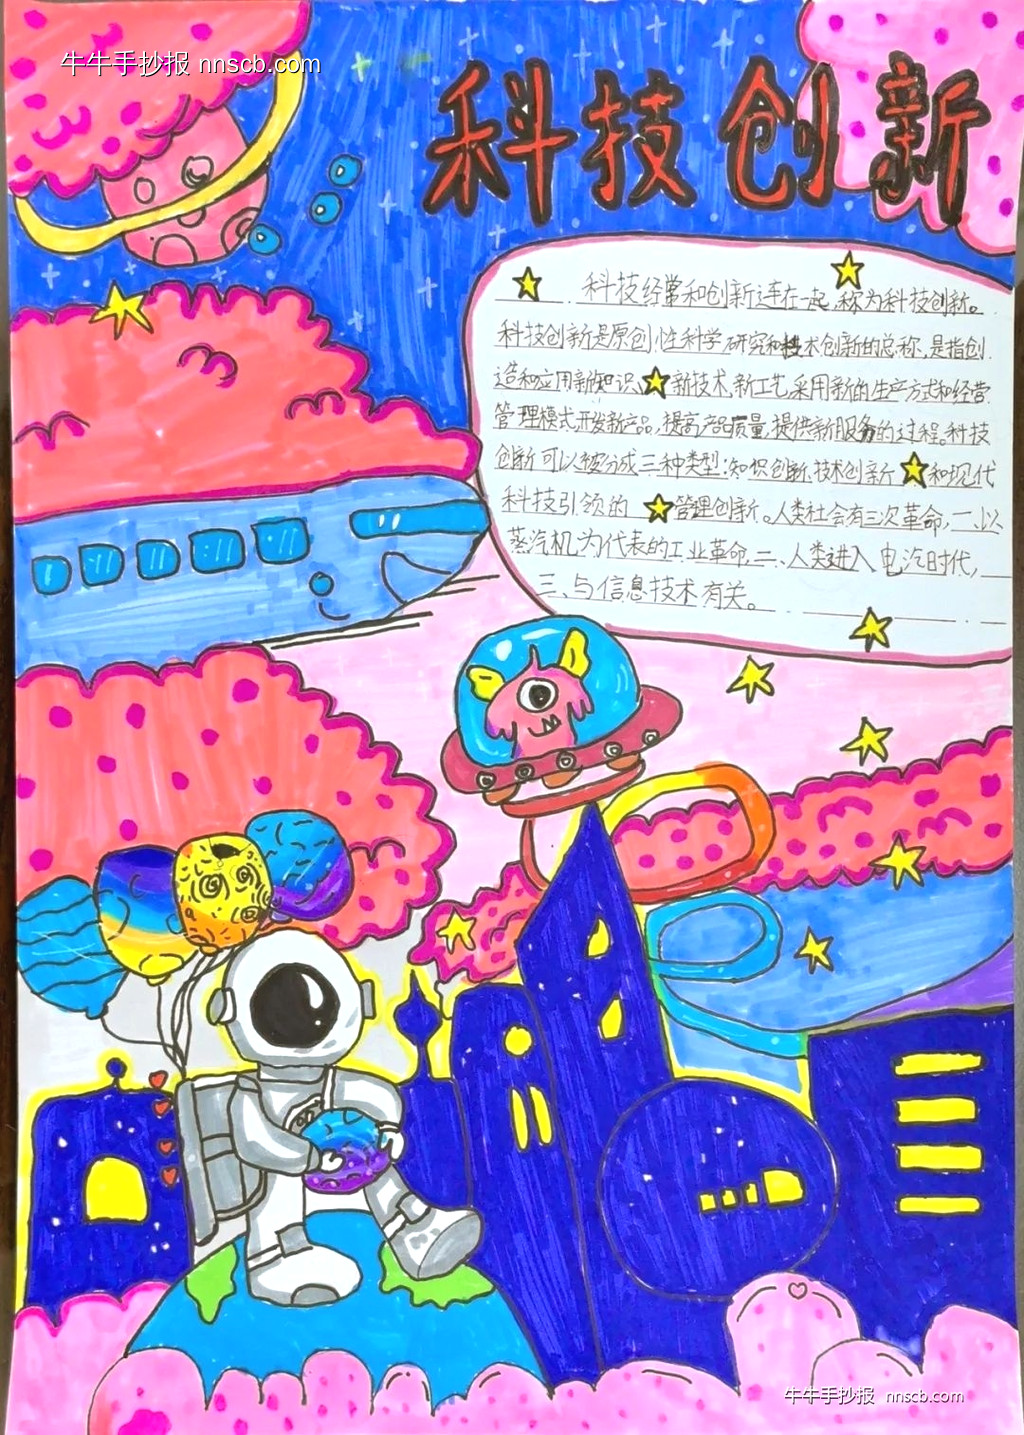 牛牛手抄报 nnscb.com
科技创新
科技经常和创新连在一起,称为科技创新。
科技创新是原创性科学研究和技术创新的总称,是指创
造和应用新知识、新技术,新工艺,采用新的生产方式和经营
管理模式,开发新产品,提高产品质量,提供新服务的过程。科技
创新可以被分成三种类型:知识创新、技术创新和现代
科技引领的管理创新。人类社会有三次革命,一、以
蒸汽机为代表的工业革命,二、人类进入电汽时代,
三、与信息技术有关。
牛牛手抄报 nnscb.com